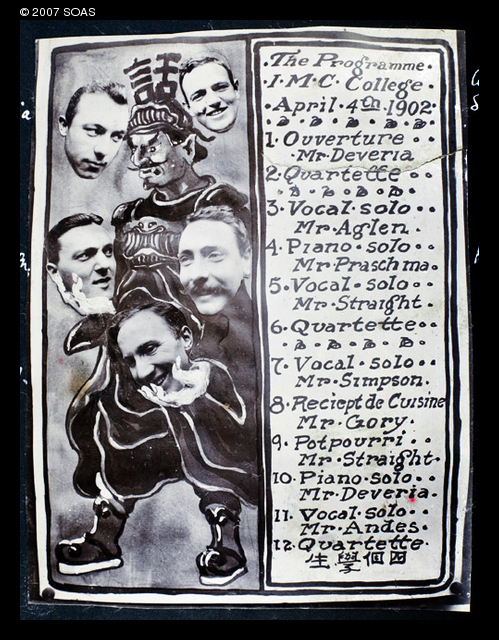 © 2007 SOAS
話
The Programme
I·M·C· College
April·4th·1902·
1·Ouverture
Mr·Deveria
2·Quartette
3·Vocal·solo
Mr·Aglen.
4·Piano·solo
Mr·Praschma.
5·Vocal·solo
Mr·Straight·
6·Quartette
7·Vocal·solo
Mr·Simpson.
8·Reciept de Cuisine
Mr·Gory.
9·Potpourri
Mr·Straight·
10·Piano·solo
Mr·Deveria·
11·Vocal·solo
Mr·Andes·
12·Quartette·
生學個四